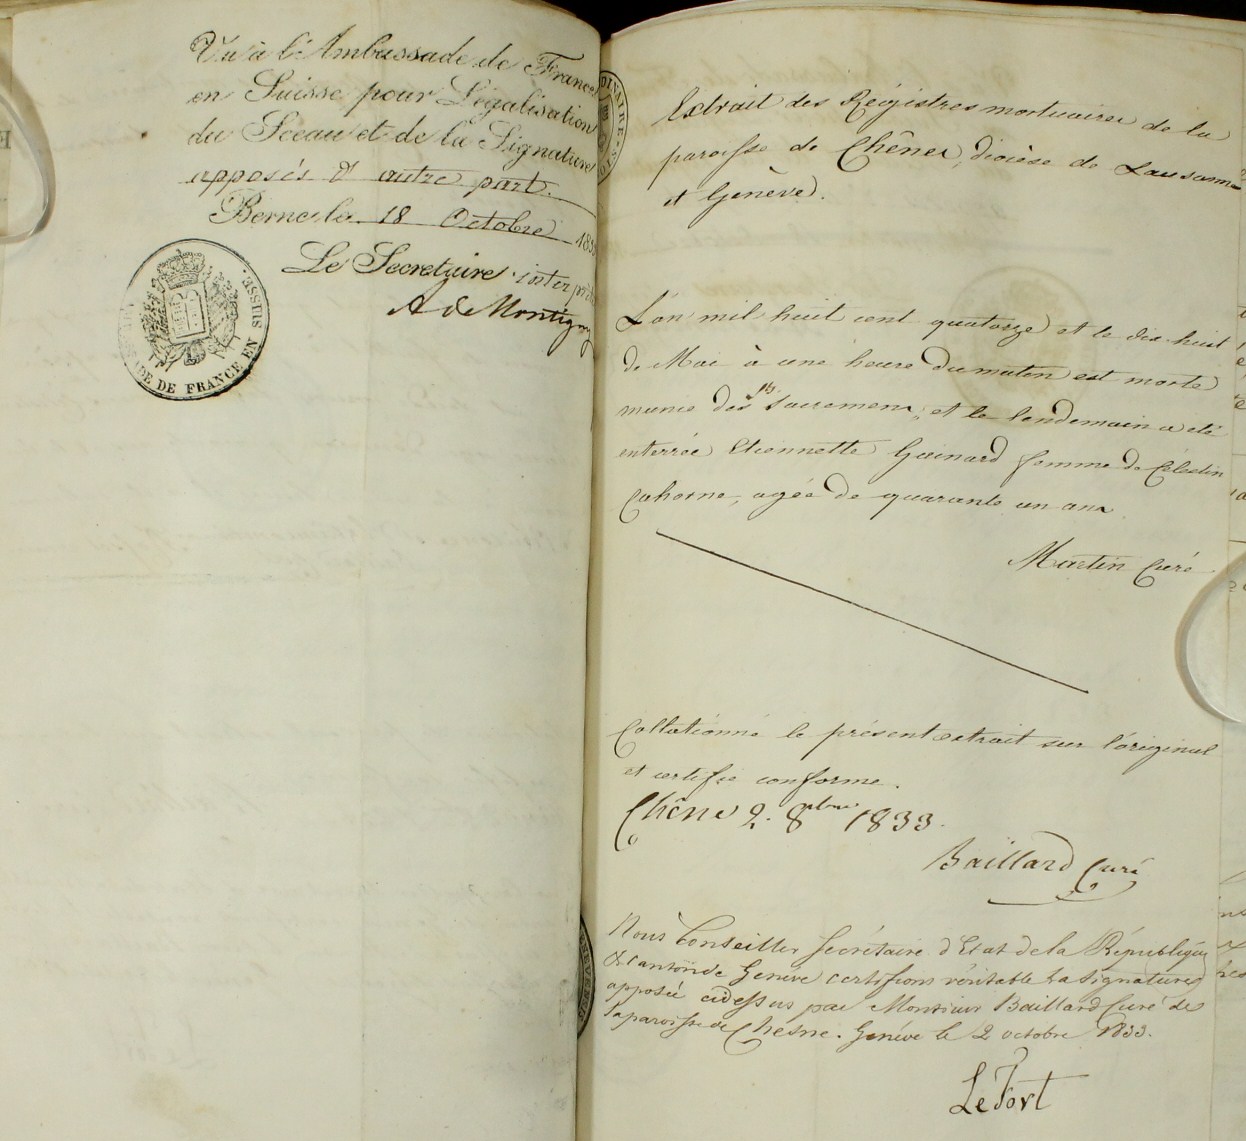 Vu à l'Ambassade de France
en Suisse pour Légalisation
du Sceau et de la Signature
apposés d' autre part.
Berne, le 18 Octobre 183
Le Secretaire interprète
A de Montigny
DE DE FRANCE EN SUISSE.
Extrait des Régistres mortuaires de la
paroisse de Chênes, diocèse de Lausanne
et Genève.
L'an mil huit cent quatorze et le dix huit
de Mai à une heure du matin est morte
munie des Sacremens, et le lendemain a été
enterrée Etiennette Guinard femme de Célestin
Cahorne, agée de quarante un ans
Martin Curé
Collationné le présent extrait sur l'original
et certifié conforme.
Chêne 2. 8bre 1833.
Baillard Curé
Nous Conseiller Secrétaire d'Etat de la République
& canton de Genève certifions véritable la signature
apposée cidessus par Monsieur Baillard Curé de
la paroisse de Chesne. Genève le 2 octobre 1833.
LeFort